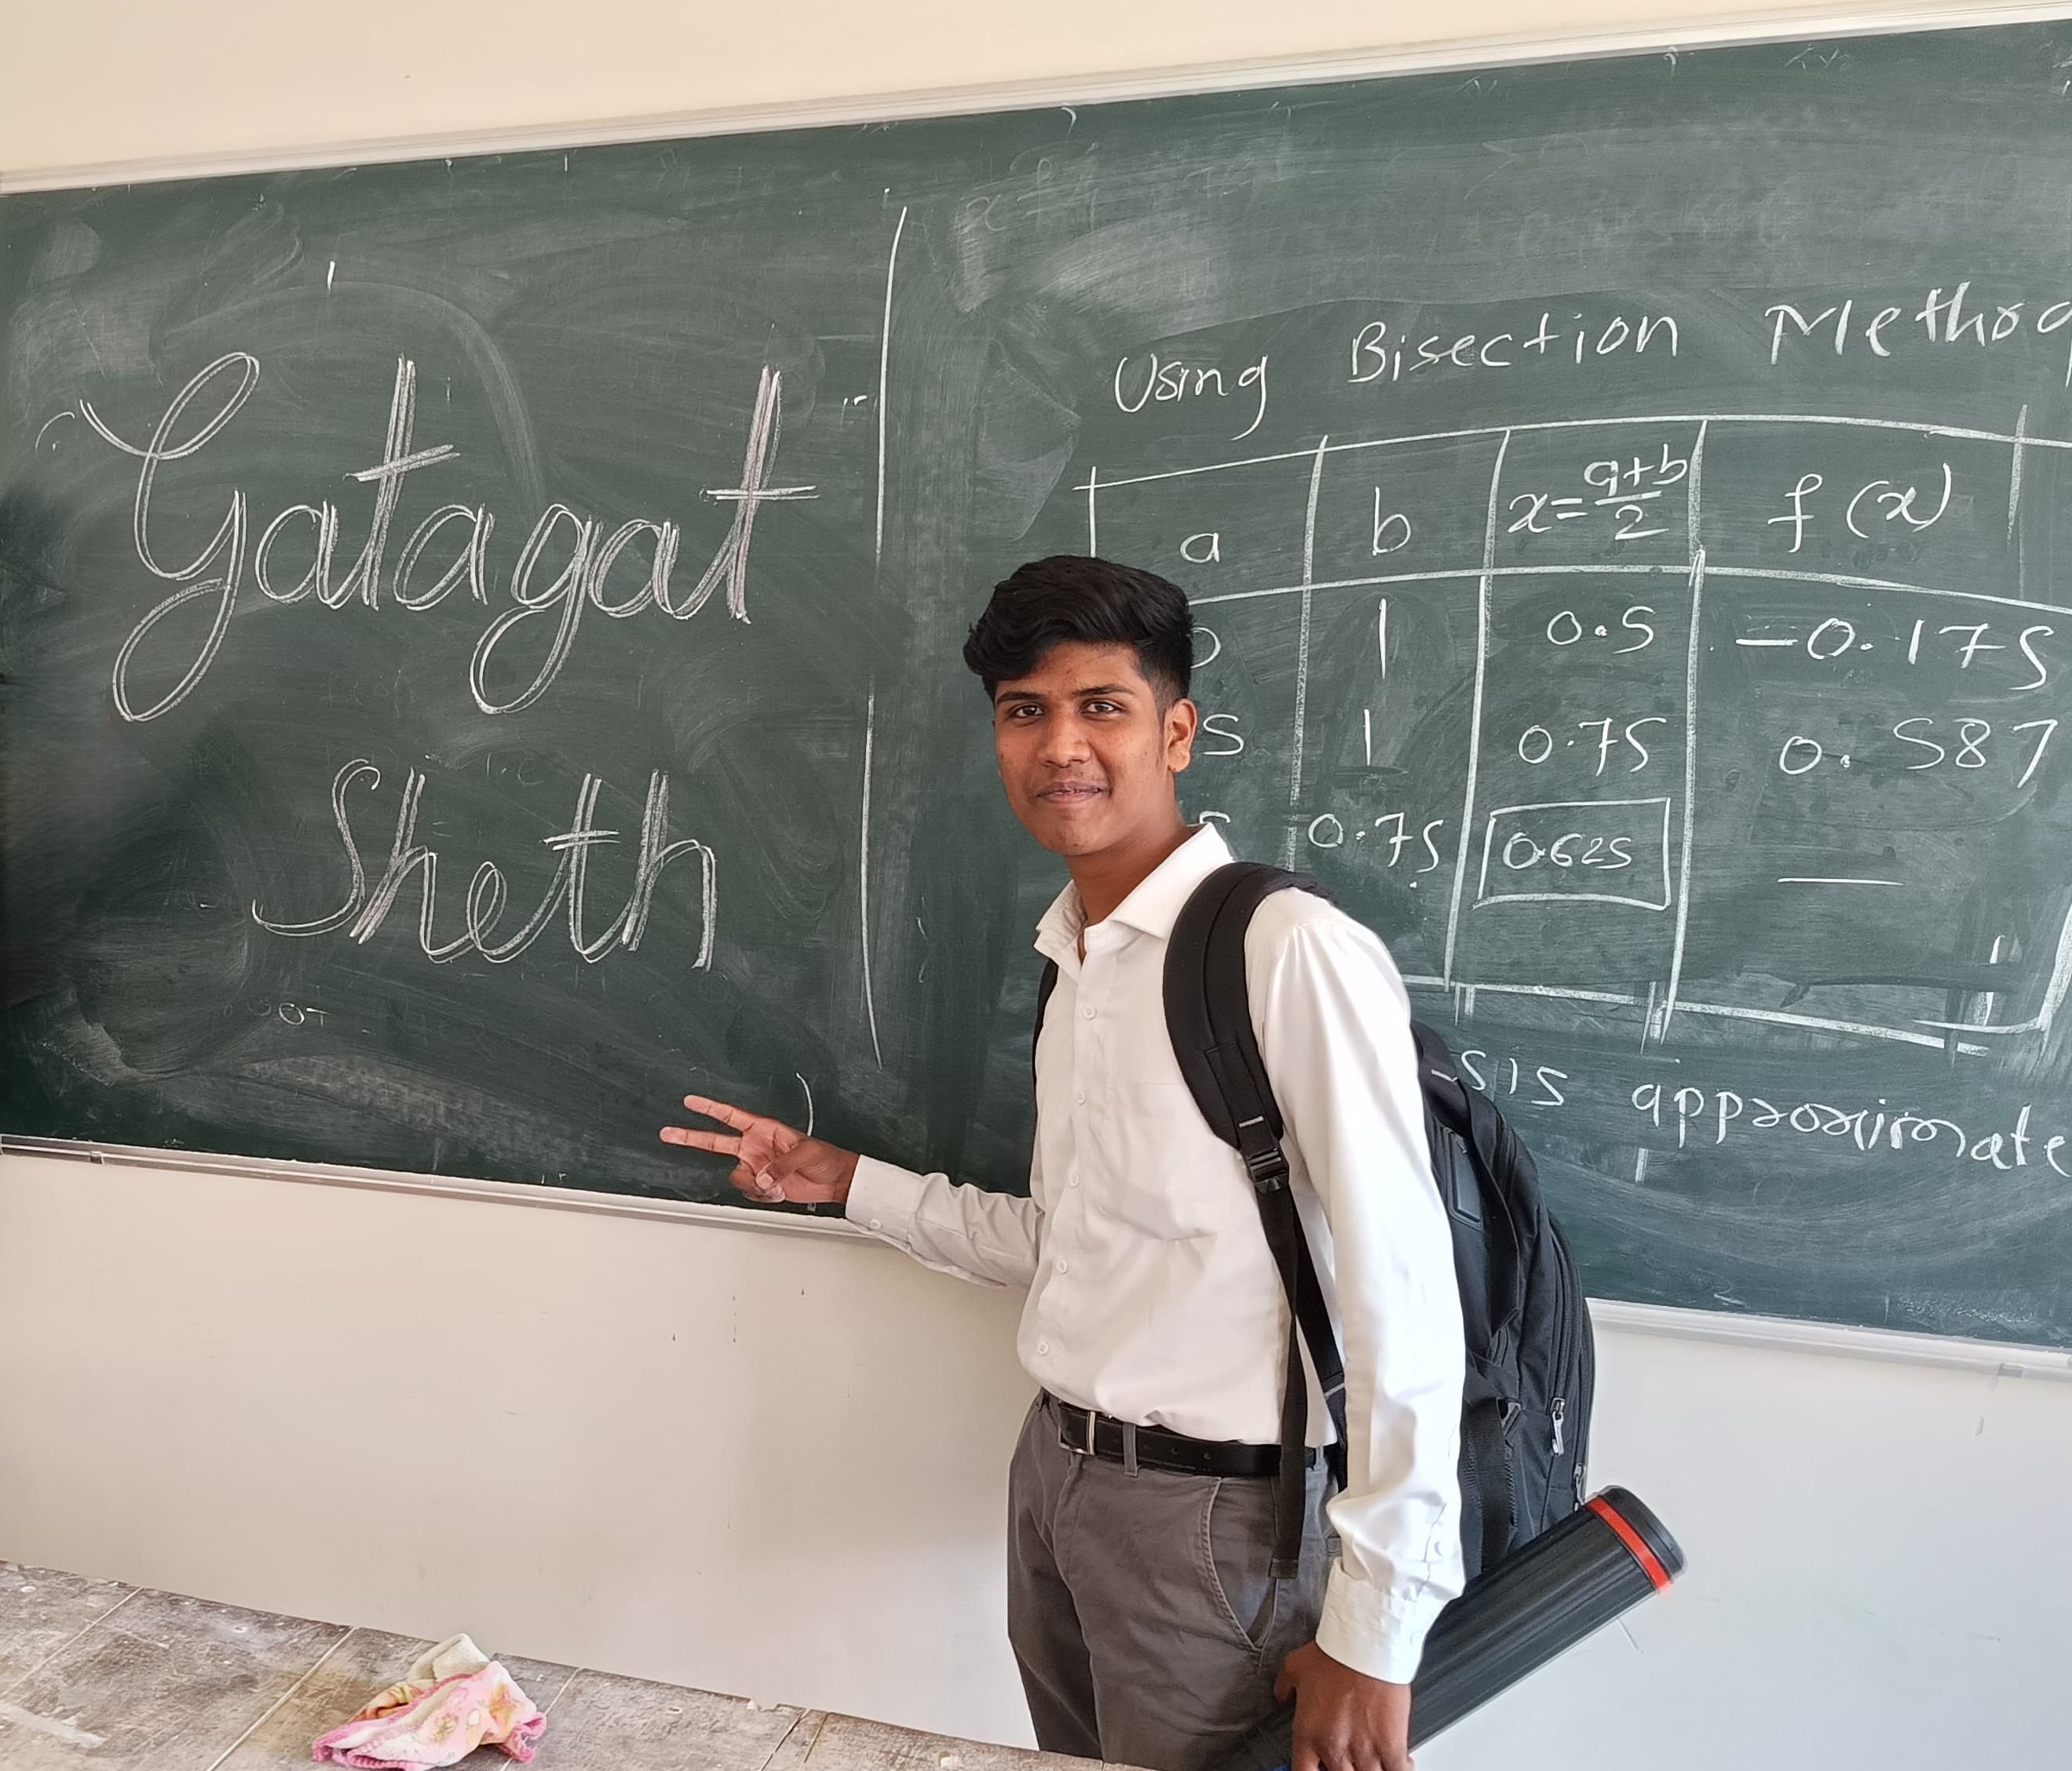 Gatagat
Sheth
Using Bisection Method
a b x=a+b/2 f(x)
0 1 0.5 -0.175
5 1 0.75 0.587
5 0.75 0.625 —
sis approximate